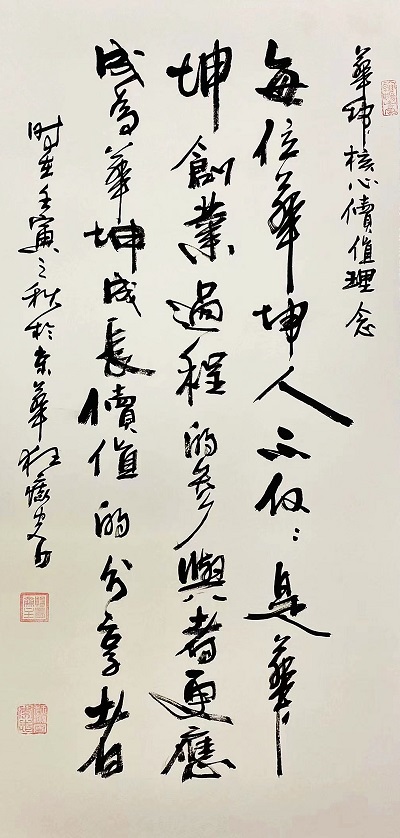 華坤核心價值理念
每位華坤人不仅仅是華
坤創業過程的参與者更應
成為華坤成長價值的分享者
时在壬寅之秋於東華